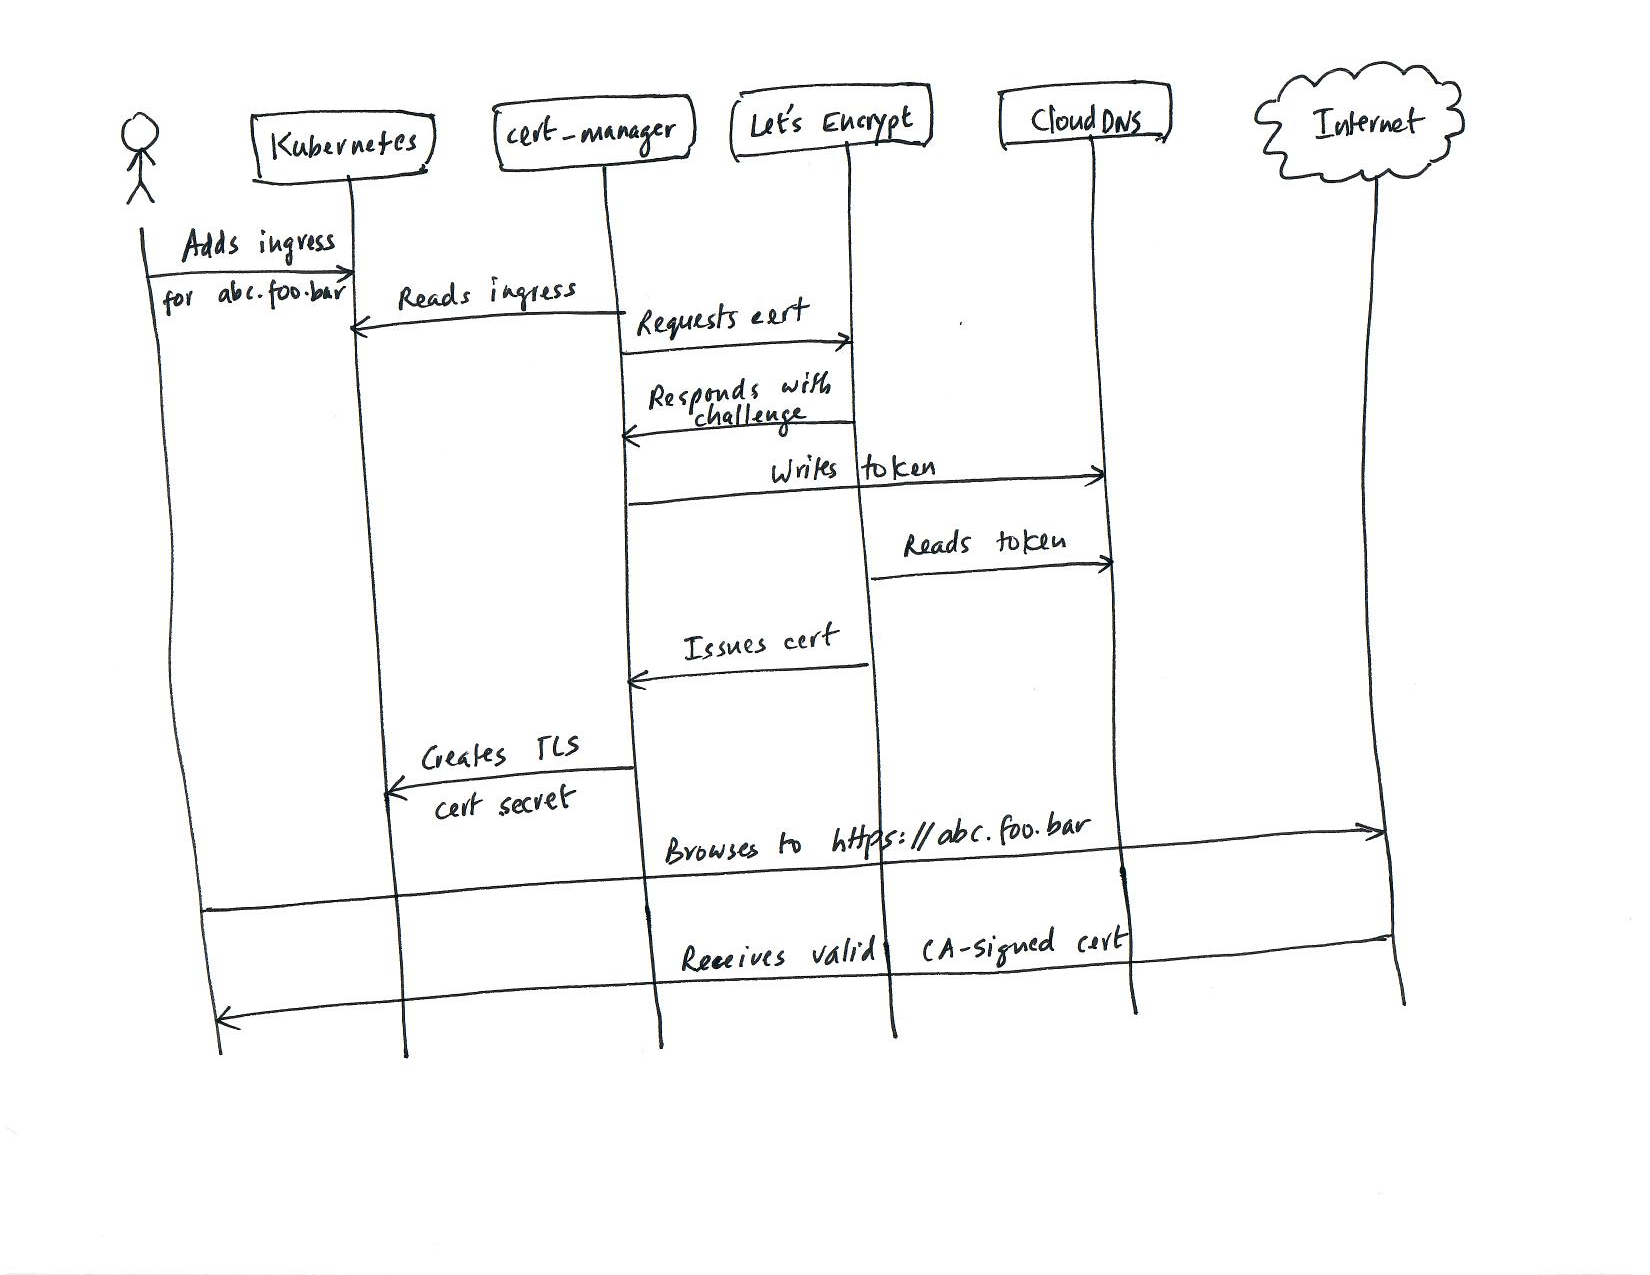 Kubernetes
cert-manager
Let's Encrypt
CloudDNS
Internet
Adds ingress
for abc.foo.bar
Reads ingress
Requests cert
Responds with
challenge
Writes token
Reads token
Issues cert
Creates TLS
cert secret
Browses to https://abc.foo.bar
Receives valid CA-signed cert